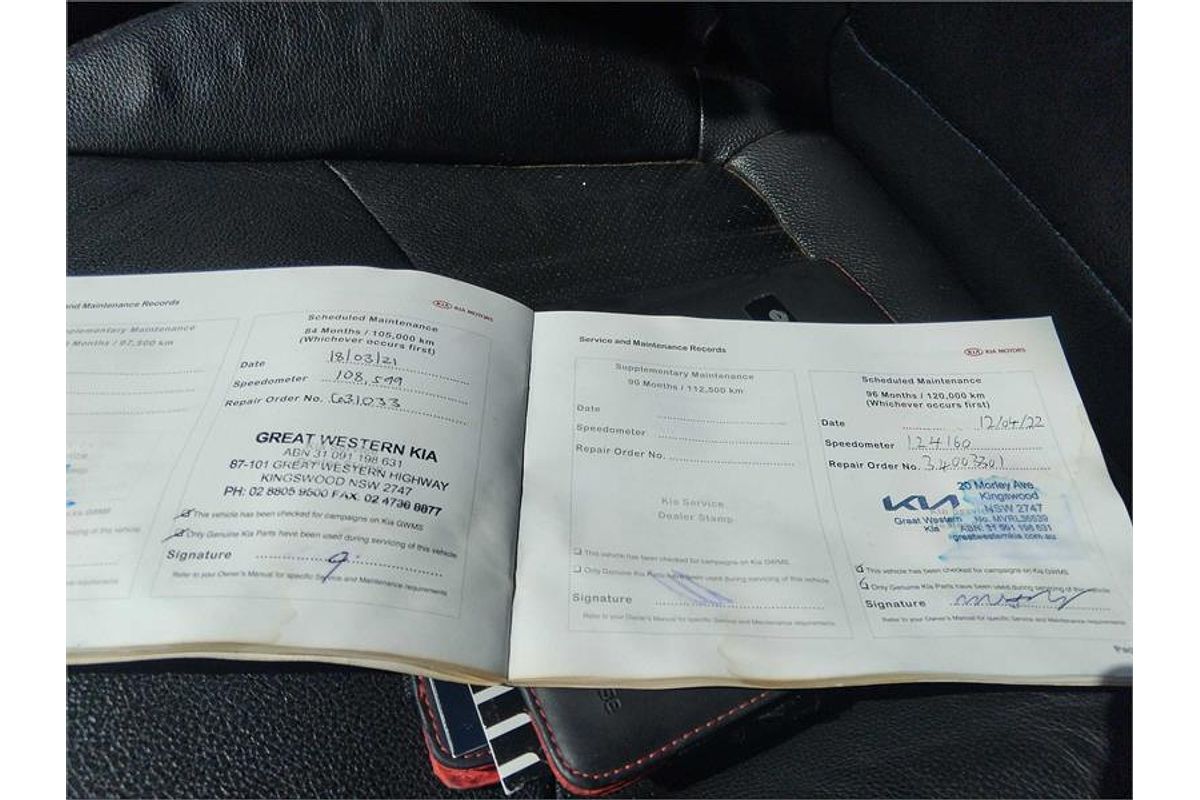 and Maintenance Records
KIA KIA MOTORS
Supplementary Maintenance
Months / 97,500 km
Scheduled Maintenance
84 Months / 105,000 km
(Whichever occurs first)
Date 18/03/21
Speedometer 108,599
Repair Order No. 631033
GREAT WESTERN KIA
ABN 31 091 198 631
87-101 GREAT WESTERN HIGHWAY
KINGSWOOD NSW 2747
PH: 02 8805 9500 FAX: 02 4736 8877
This vehicle has been checked for campaigns on Kia GWMS
Only Genuine Kia Parts have been used during servicing of this vehicle
Signature
Refer to your Owner's Manual for specific Service and Maintenance requirements
on Kia GWMS
servicing of this vehicle
requirements
Service and Maintenance Records
KIA KIA MOTORS
Supplementary Maintenance
90 Months / 112,500 km
Date
Speedometer
Repair Order No.
Kia Service
Dealer Stamp
This vehicle has been checked for campaigns on Kia GWMS
Only Genuine Kia Parts have been used during servicing of this vehicle
Signature
Refer to your Owner's Manual for specific Service and Maintenance requirements
Scheduled Maintenance
96 Months / 120,000 km
(Whichever occurs first)
Date 12/04/22
Speedometer 124160
Repair Order No. 34003301
KIA
Great Western
Kia
20 Morley Ave
Kingswood
NSW 2747
No. MVRL56539
ABN: 31 091 198 631
greatwesternkia.com.au
This vehicle has been checked for campaigns on Kia GWMS
Only Genuine Kia Parts have been used during servicing of this vehicle
Signature
Refer to your Owner's Manual for specific Service and Maintenance requirements